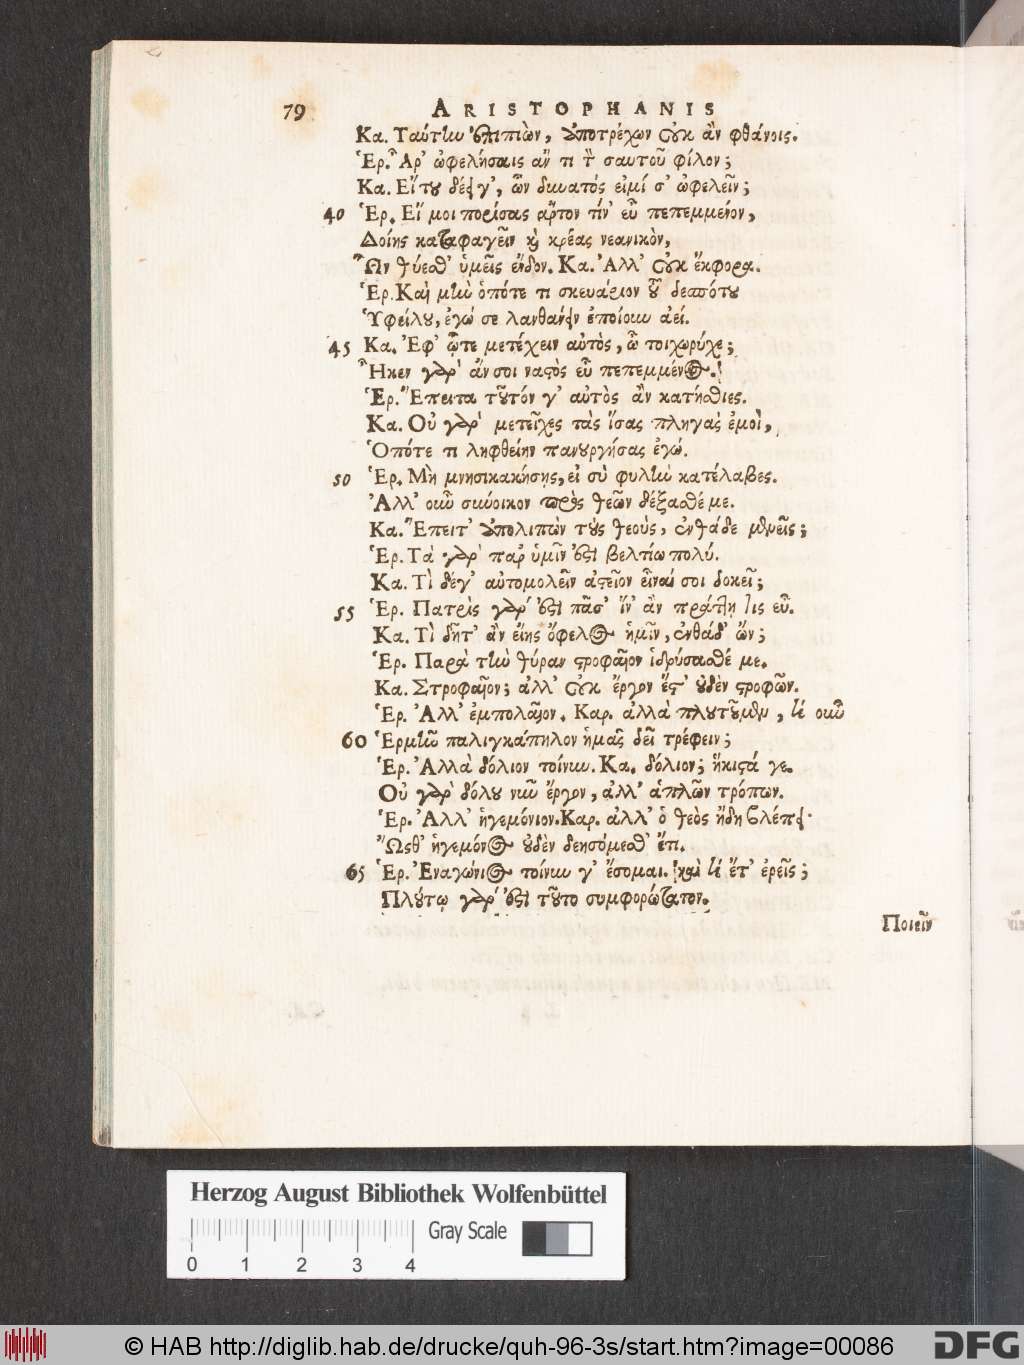 79 ARISTOPHANIS
Κα. Ταύτην ἐπιπιὼν, ἀποτρέχων οὐκ ἂν φθάνοις.
Ἑρ. Ἆρ' ὠφελήσαις ἄν τι τὸν σαυτοῦ φίλον;
Κα. Εἴ του δέῃ γ', ὧν δυνατός εἰμί σ' ὠφελεῖν;
40 Ἑρ. Εἴ μοι πορίσας ἄρτον τίν' εὖ πεπεμμένον,
Δοίης καταφαγεῖν καὶ κρέας νεανικὸν,
Ὧν θύεσθ' ὑμεῖς ἔνδον. Κα. Ἀλλ' οὐκ ἔκφορα.
Ἑρ. Καὶ μὴν ὁπότε τι σκευάριον τοῦ δεσπότου
Ὑφείλου, ἐγώ σε λανθάνειν ἐποίουν ἀεί.
45 Κα. Ἐφ' ᾧτε μετέχειν αὐτὸς, ὦ τοιχωρύχε;
Ἧκεν γὰρ ἄν σοι ναστὸς εὖ πεπεμμένος.
Ἑρ. Ἔπειτα τοῦτόν γ' αὐτὸς ἂν κατήσθιες.
Κα. Οὐ γὰρ μετεῖχες τὰς ἴσας πληγὰς ἐμοὶ,
Ὁπότε τι ληφθείην πανουργήσας ἐγώ.
50 Ἑρ. Μὴ μνησικακήσῃς, εἰ σὺ φυλὴν κατέλαβες.
Ἀλλ' οὖν σύνοικον πρὸς θεῶν δέξασθέ με.
Κα. Ἔπειτ' ἀπολιπὼν τοὺς θεοὺς, ἐνθάδε μενεῖς;
Ἑρ. Τὰ γὰρ παρ' ὑμῖν ἐστὶ βελτίω πολύ.
Κα. Τὶ δέ γ' αὐτομολεῖν ἀστεῖον εἶναί σοι δοκεῖ;
55 Ἑρ. Πατρὶς γάρ ἐστι πᾶσ' ἵν' ἂν πράττῃ τις εὖ.
Κα. Τὶ δῆτ' ἂν εἴης ὄφελος ἡμῖν, ἐνθάδ' ὤν;
Ἑρ. Παρὰ τὴν θύραν στροφαῖον ἱδρύσασθέ με.
Κα. Στροφαῖον; ἀλλ' οὐκ ἔργον ἔστ' οὐδὲν στροφῶν.
Ἑρ. Ἀλλ' ἐμπολαῖον. Καρ. ἀλλὰ πλουτοῦμεν, τί οὖν
60 Ἑρμῆν παλιγκάπηλον ἡμᾶς δεῖ τρέφειν;
Ἑρ. Ἀλλὰ δόλιον τοίνυν. Κα. δόλιον; ἥκιστά γε.
Οὐ γὰρ δόλου νῦν ἔργον, ἀλλ' ἁπλῶν τρόπων.
Ἑρ. Ἀλλ' ἡγεμόνιον. Καρ. ἀλλ' ὁ θεὸς ἤδη βλέπει·
Ὥσθ' ἡγεμόνος οὐδὲν δεησόμεσθ' ἔτι.
65 Ἑρ. Ἐναγώνιος τοίνυν γ' ἔσομαι. καὶ τί ἔτ' ἐρεῖς;
Πλούτῳ γάρ ἐστι τοῦτο συμφορώτατον.
Ποιεῖν
Herzog August Bibliothek Wolfenbüttel
Gray Scale
0 1 2 3 4
© HAB http://diglib.hab.de/drucke/quh-96-3s/start.htm?image=00086 DFG